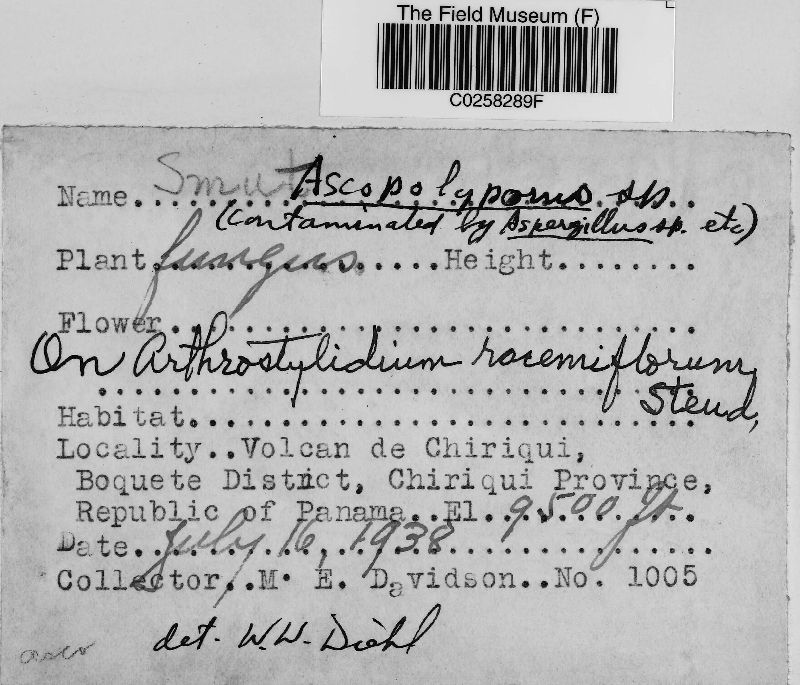 The Field Museum (F)
C0258289F
Name. Smut Ascopolyporus sp.
(contaminated by Aspergillus sp. etc)
Plant fungus. Height........
Flower
On Arthrostylidium racemiflorum
Steud,
Habitat.
Locality..Volcan de Chiriqui,
Boquete District, Chiriqui Province,
Republic of Panama..El. 9500 ft.
Date. July 16, 1938
Collector..M. E. Davidson..No. 1005
det. W.W. Diehl
asco